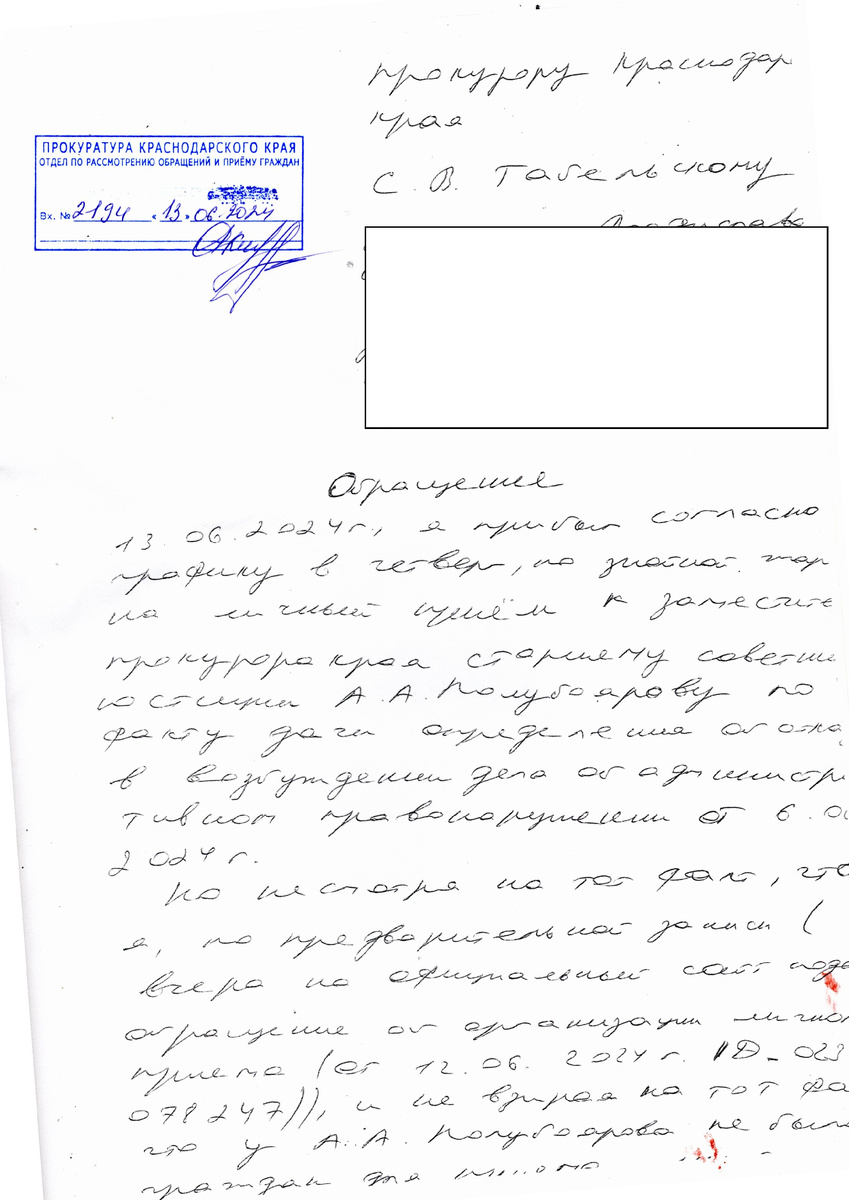 прокурору Краснодар
края
ПРОКУРАТУРА КРАСНОДАРСКОГО КРАЯ
ОТДЕЛ ПО РАССМОТРЕНИЮ ОБРАЩЕНИЙ И ПРИЁМУ ГРАЖДАН
С. В. Табельскому
Вх. № 2194 « 13 » 06.2024
Обращение
13. 06. 2024г., я прибыл согласно
графику в четверг, по знойной жар
на личный приём к заместите
прокурора края старшему советни
юстиции А. А. Полубоярову по
факту дачи определения об отка
в возбуждении дела об администра
тивном правонарушении от 6. 0
2024 г.
Но несмотря на тот факт, что
я, по предварительной записи (
вчера на официальный сайт пода
обращение об организации лично
приема (от 12. 06. 2024 г. ID_023
078247)), и не взирая на тот фа
что у А. А. Полубоярова не было
граждан для